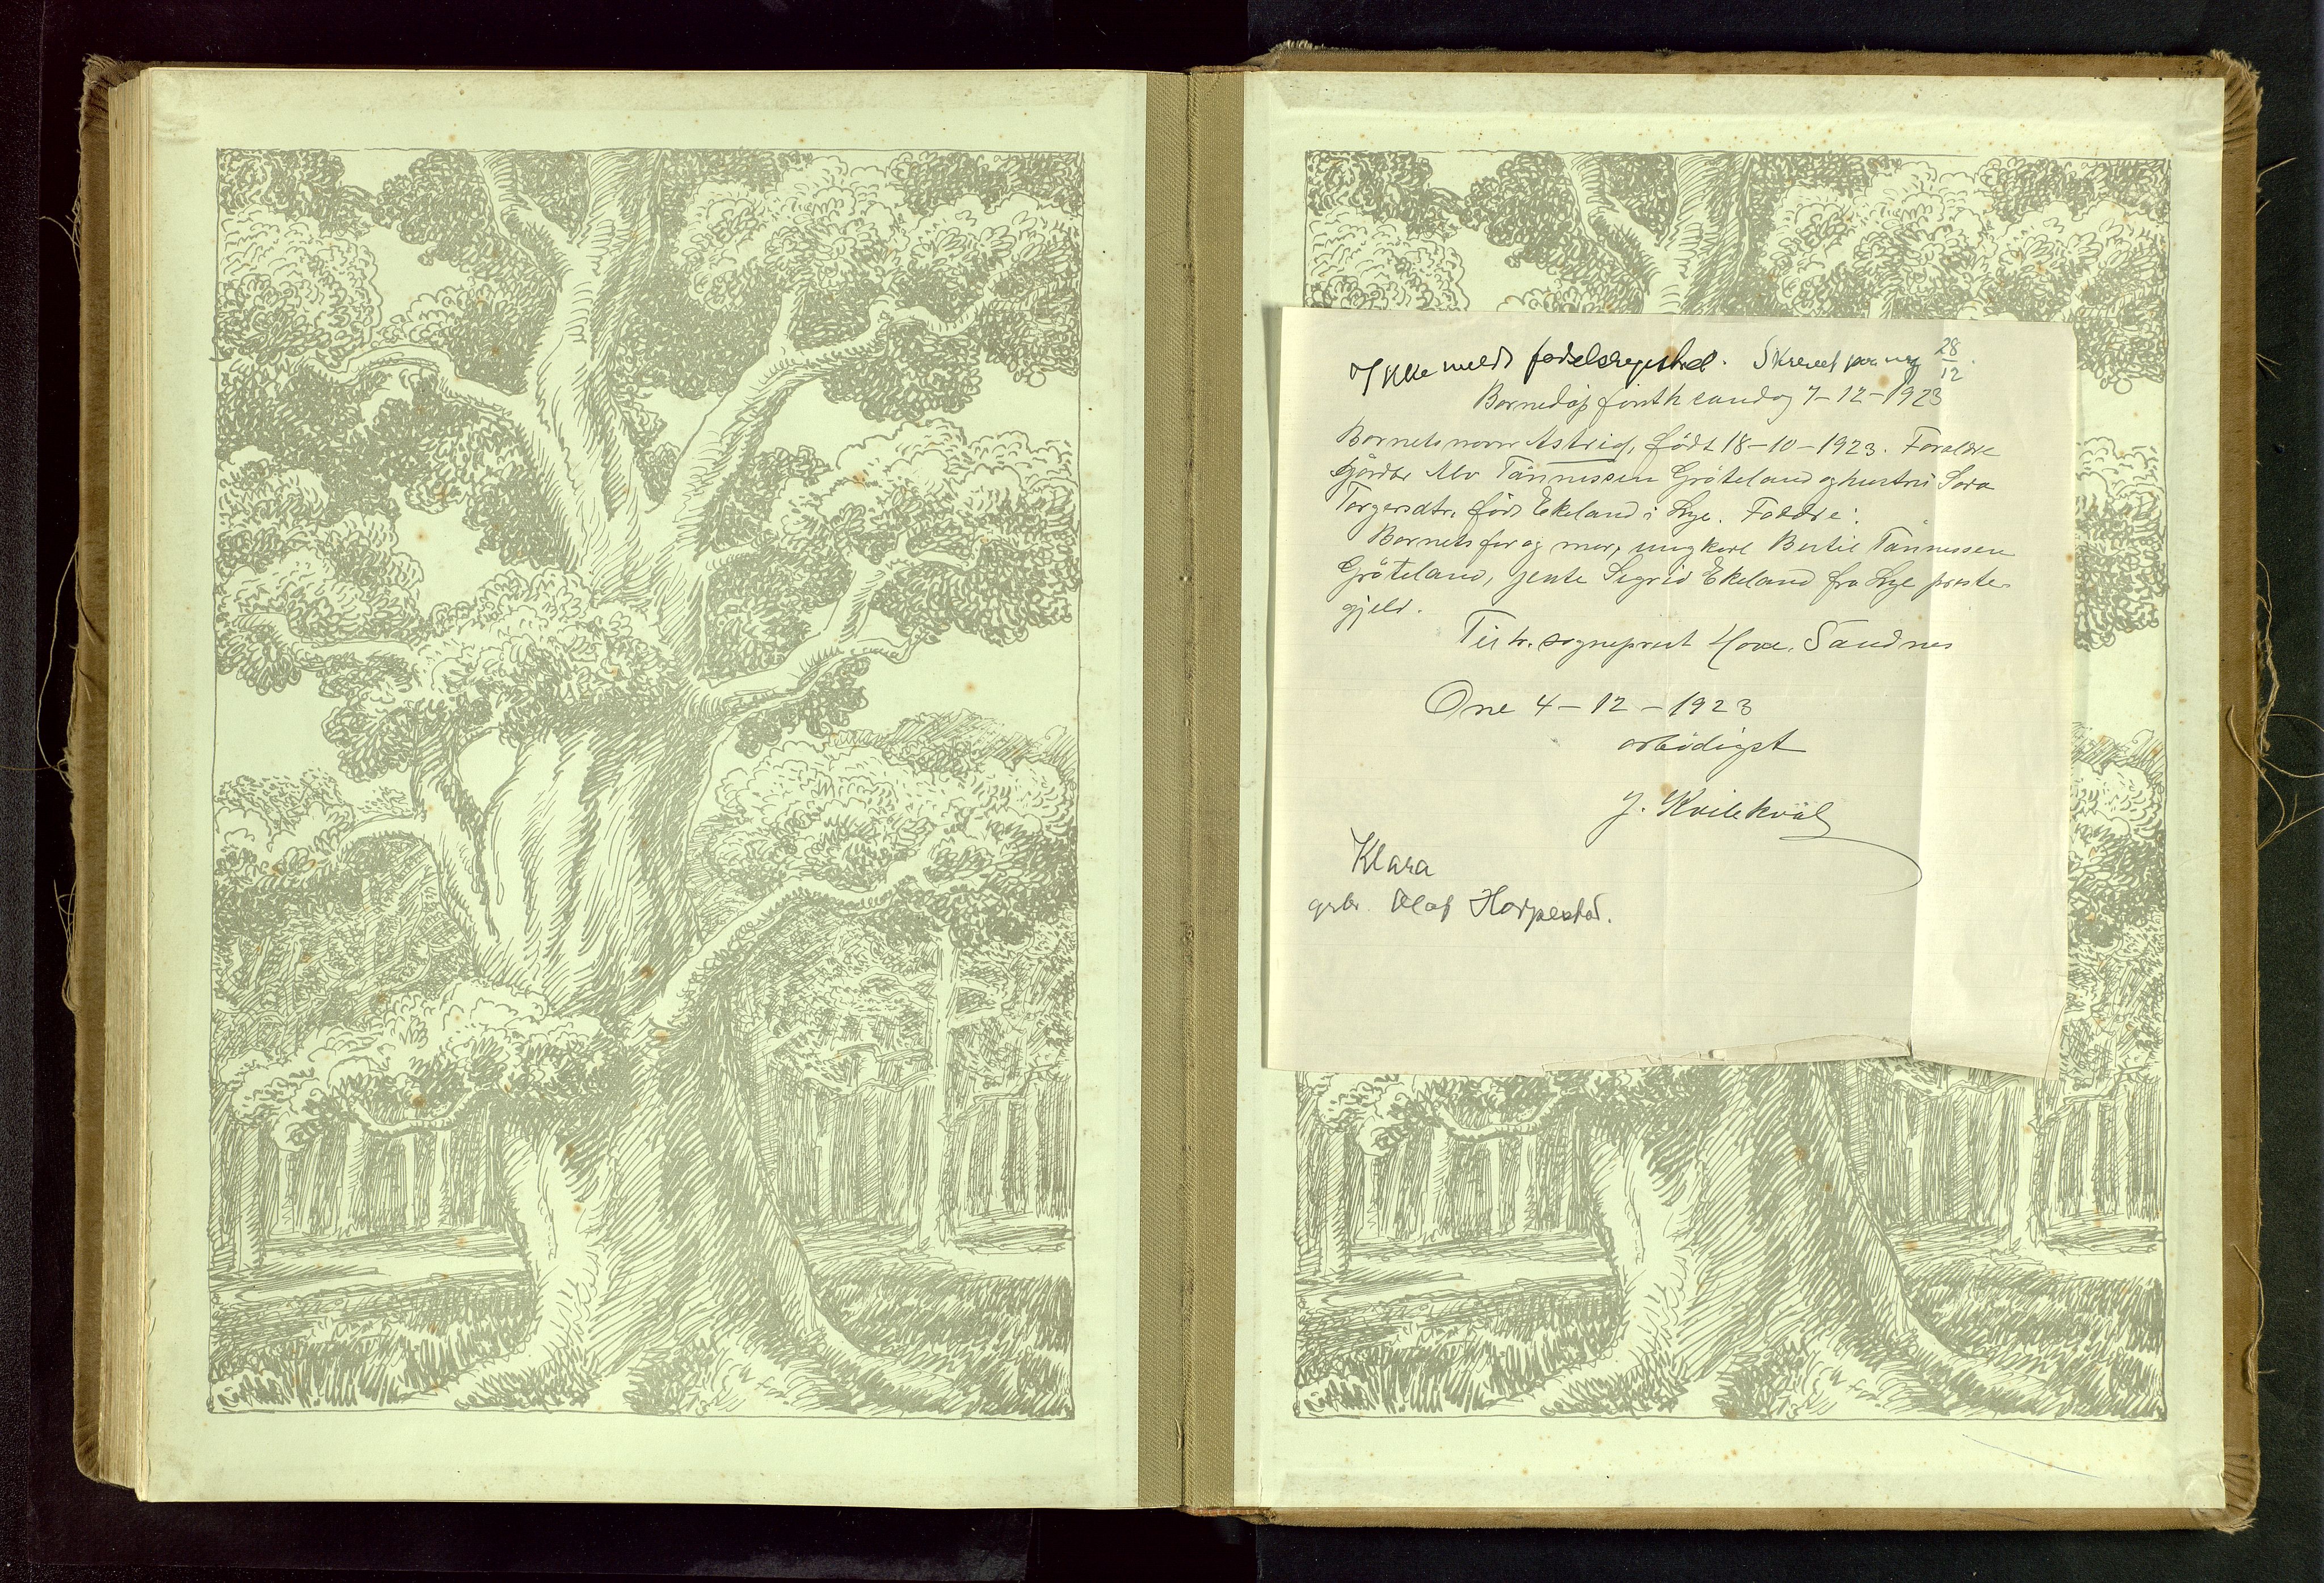 Ikke meldt fødselsregistret. Skrevet paa ny 28/12.
Barnedåp sandag 7-12-1923
Barnets navn Astrid, född 18-10-1923. Foraldre
Alv Tännessen Gröteland og hustru Sara
Torgersdtr. född Ekeland i Lye. Faddre:
Barnets far og mor, ungkarl Bertil Tännessen
Gröteland, jente Sigrid Ekeland fra Lye preste-
gjeld.
Til hr. sogneprest Hove. Sandnes
One 4-12-1923
arbödigst
J. Kvilekvål
Klara
Olaf Harpestad.